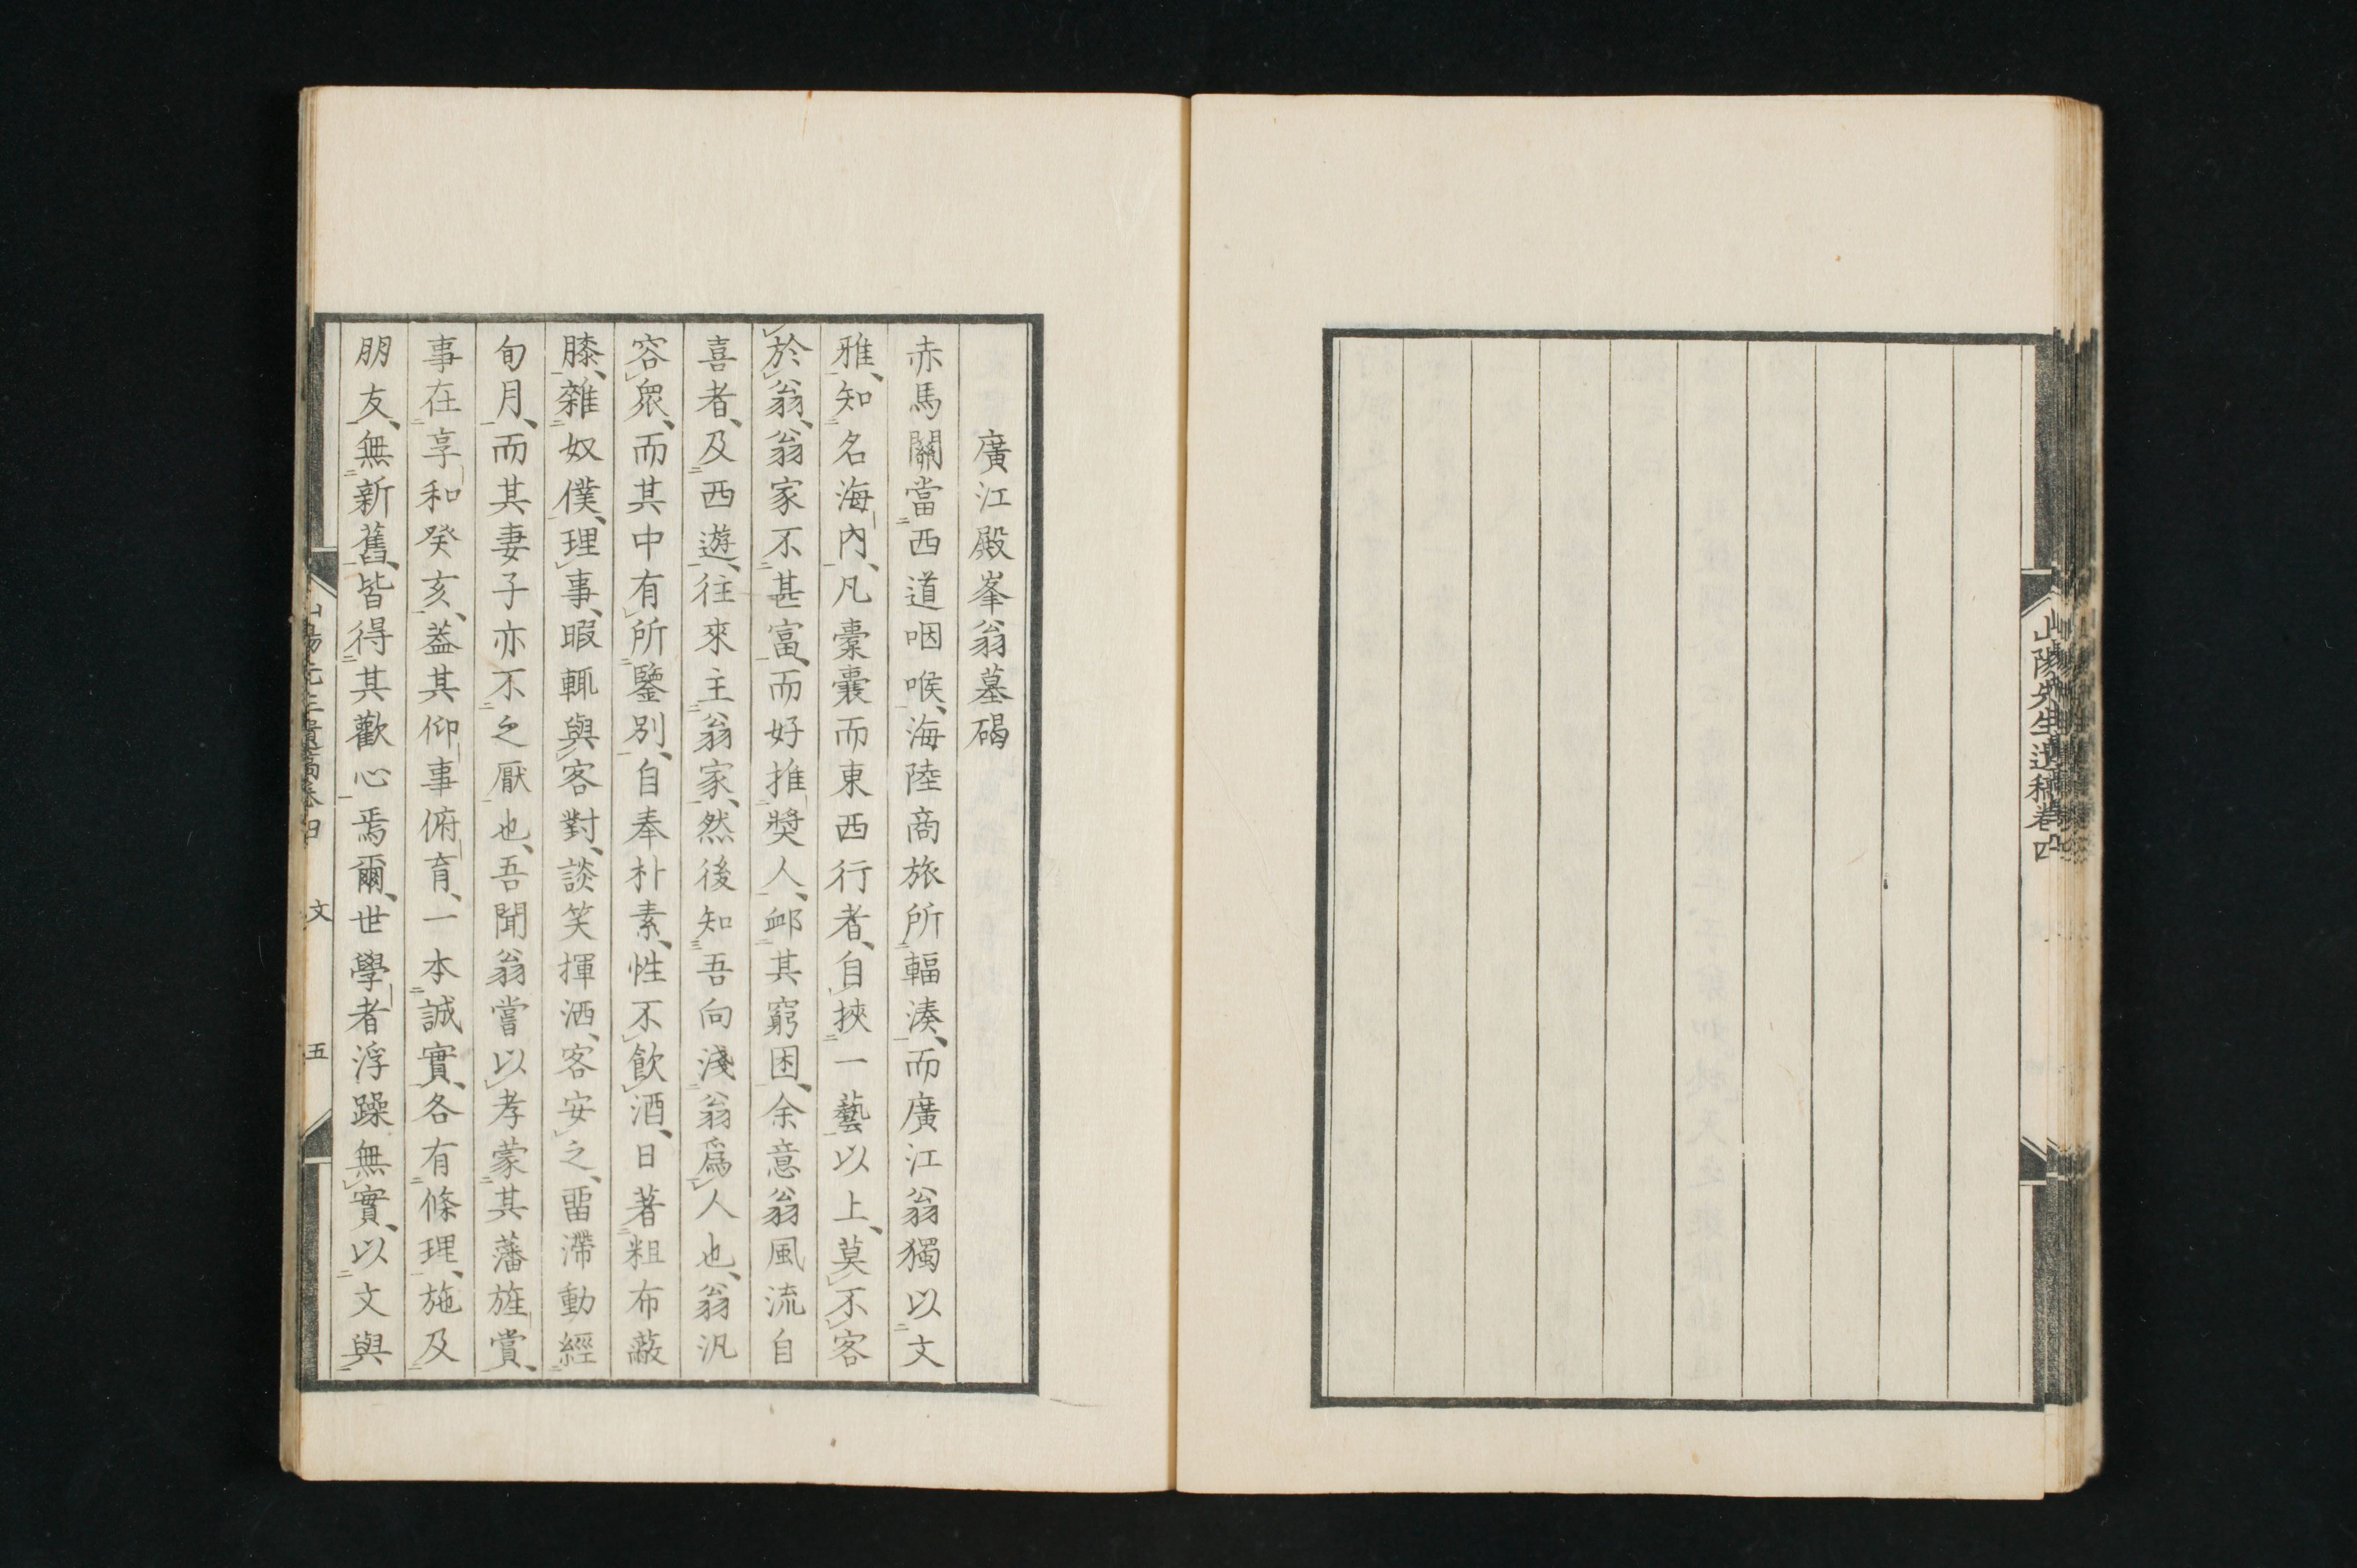 山陽先生遺稿卷四
廣江殿峯翁墓碣
赤馬關當西道咽喉、海陸商旅所輻湊、而廣江翁獨以文
雅、知名海內、凡橐囊而東西行者、自挾一藝以上、莫不客
於翁、翁家不甚富、而好推奬人、䘏其窮困、余意翁風流自
喜者、及西遊、往來主翁家、然後知吾向淺翁爲人也、翁汎
容衆、而其中有所鑒別、自奉朴素、性不飮酒、日著粗布蔽
膝、雜奴僕、理事、暇輒與客對、談笑揮洒、客安之、畱滯動經
旬月、而其妻子亦不之厭也、吾聞翁嘗以孝蒙其藩旌賞、
事在享和癸亥、葢其仰事俯育、一本誠實、各有條理、施及
朋友、無新舊、皆得其歡心焉爾、世學者浮躁無實、以文與
山陽先生遺稿卷四 文 五